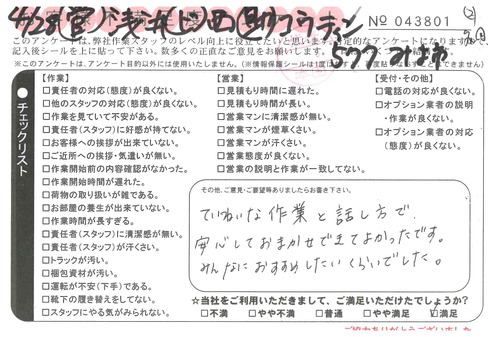 No 043801
このアンケートは、弊社作業スタッフのレベル向上に役立てたいと思います。
記入後シールを上に貼って下さい。数多くの正直なご意見をお願いします。
(※このアンケートは、アンケート目的以外には使用いたしません。)
【作業】
□責任者の対応(態度)が良くない。
□他のスタッフの対応(態度)が良くない。
□作業を見ていて不安がある。
□責任者(スタッフ)に好感が持てない。
□お客様への挨拶が出来ていない。
□ご近所への挨拶・気遣いが無い。
□作業開始前の内容確認がなかった。
□作業開始時間が遅れた。
□荷物の取り扱いが雑である。
□お部屋の養生が出来ていない。
□作業時間が長すぎる。
□責任者(スタッフ)に清潔感が無い。
□責任者(スタッフ)が汗くさい。
□トラックが汚い。
□梱包資材が汚い。
□運転が不安(下手)である。
□靴下の履き替えをしてない。
□スタッフにやる気がみられない。
【営業】
□見積もり時間に遅れた。
□見積もり時間が長い。
□営業マンに清潔感が無い。
□営業マンが煙草くさい。
□営業マンが汗くさい。
□営業態度が良くない。
□営業の説明と作業が一致してない。
【受付・その他】
□電話の対応が良くない。
□オプション業者の説明
・作業が良くない。
□オプション業者の対応
(態度)が良くない。
チェックリスト
その他、ご意見・ご要望等ありましたらお書き下さい。
ていねいな作業と話し方で、
安心しておまかせできてよかったです。
みんなにおすすめしたいくらいでした。
☆当社をご利用いただきまして、ご満足いただけたでしょうか?
□不満 □やや不満 □普通 □やや満足 ☑満足
ご協力ありがとうございました